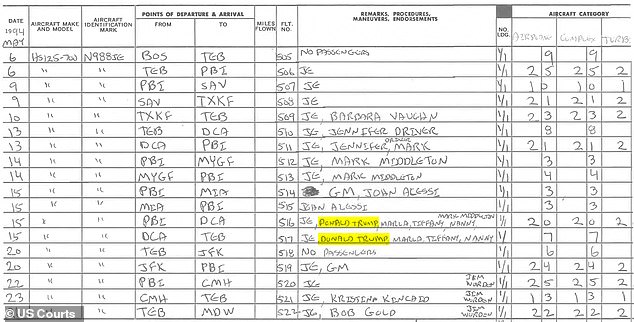 DATE AIRCRAFT MAKE AND MODEL AIRCRAFT IDENTIFICATION MARK POINTS OF DEPARTURE & ARRIVAL MILES FLOWN FLT. NO. REMARKS, PROCEDURES, MANEUVERS, ENDORSEMENTS NO. LDG. AIRCRAFT CATEGORY
1994 FROM TO AIRPLANE COMPLEX TURB
MAY
6 HS125-700 N988JE BOS TEB 505 NO PASSENGERS 1/1 9 9
6 " " TEB PBI 506 JE 1/1 2 5 2 5 2
9 " " PBI SAV 507 JE 1/1 1 0 1 0 1
9 " " SAV TXKF 508 JE 1/1 2 1 2 1 2
10 " " TXKF TEB 509 JE, BARBARA VAUGHN 1/1 2 3 2 3 2
13 " " TEB DCA 510 JE, JENNIFER DRIVER 1/1 8 8
13 " " DCA PBI 511 JE, JENNIFER DRIVER, MARK 1/1 2 1 2 1 2
14 " " PBI MYGF 512 JE, MARK MIDDLETON 1/1 3 3
14 " " MYGF PBI 513 JE, MARK MIDDLETON 1/1 4 4
15 " " PBI MIA 514 GM, JOAN ALESSI 1/1 3 3
15 " " MIA PBI 515 JOAN ALESSI 1/1 3 3
15 " " PBI DCA 516 JE, DONALD TRUMP, MARLA, TIFFANY, NANNY MARK MIDDLETON 1/1 2 0 2 0 2
15 " " DCA TEB 517 JE, DONALD TRUMP, MARLA, TIFFANY, NANNY 1/1 7 7
20 " " TEB JFK 518 NO PASSENGERS 1/1 6 6
20 " " JFK PBI 519 JE, GM 1/1 2 4 2 4 2
22 " " PBI CMH 520 JE 1/1 2 5 2 5 2
23 " " CMH TEB 521 JE, KRISTINA KINCAID 1/1 1 3 1 3 1
" " TEB MDW 522 JE, BOB GOLD 1/1 2 2 2 2 2
© US Courts